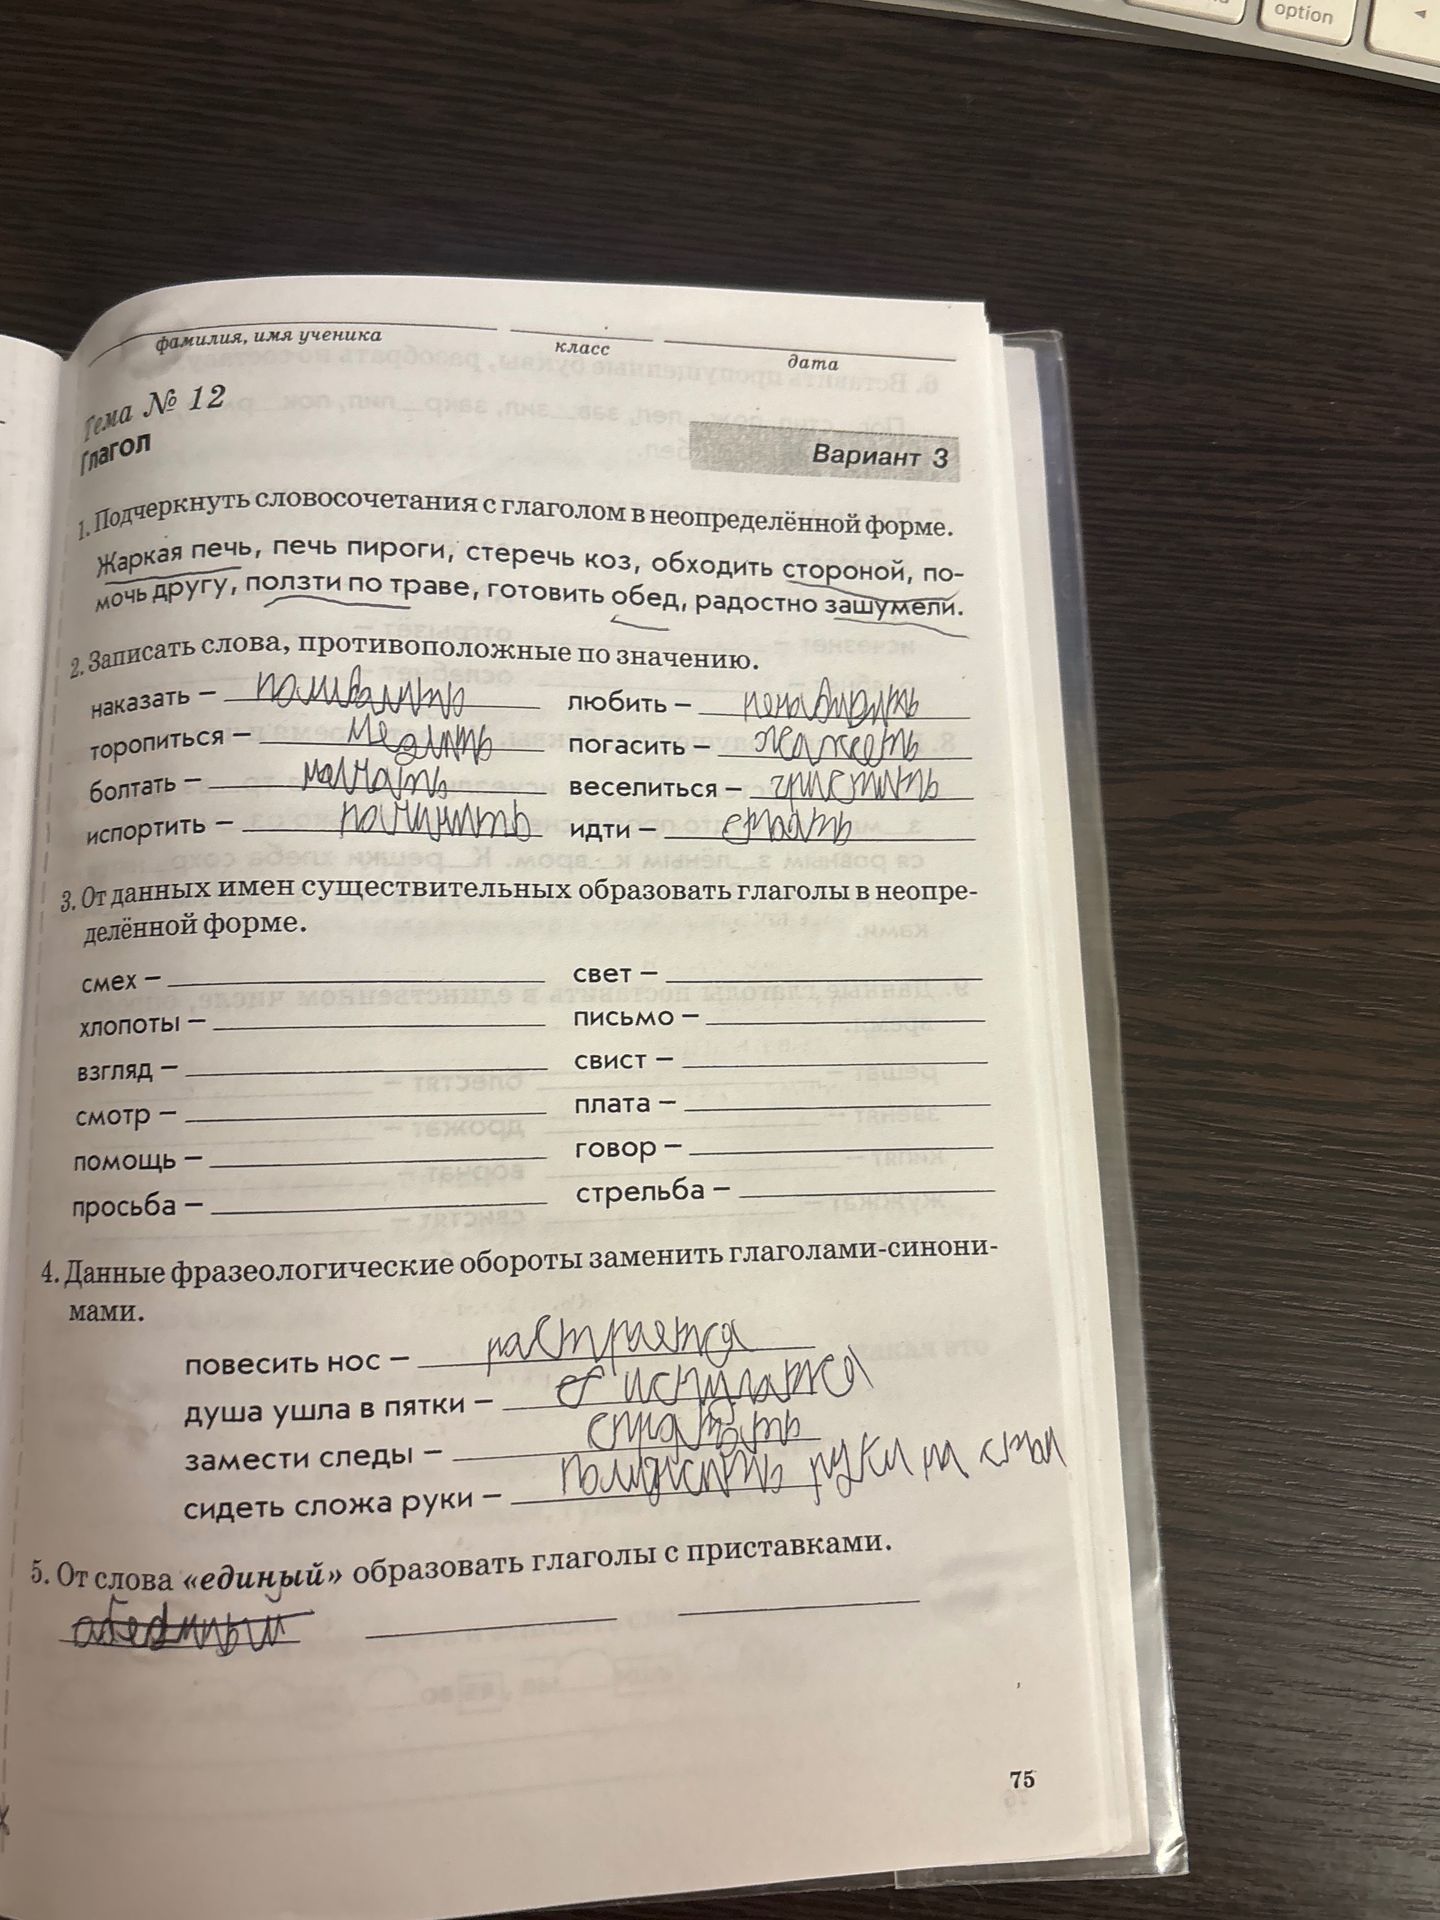 option
фамилия, имя ученика класс дата
Тема № 12
Глагол
Вариант 3
1. Подчеркнуть словосочетания с глаголом в неопределённой форме.
Жаркая печь, печь пироги, стеречь коз, обходить стороной, по-
мочь другу, ползти по траве, готовить обед, радостно зашумели.
2. Записать слова, противоположные по значению.
наказать – любить – ненавидить
торопиться – медлить погасить –
болтать – молчать веселиться – грустить
испортить – починить идти – стоять
3. От данных имен существительных образовать глаголы в неопре-
делённой форме.
смех – свет –
хлопоты – письмо –
взгляд – свист –
смотр – плата –
помощь – говор –
просьба – стрельба –
4. Данные фразеологические обороты заменить глаголами-синони-
мами.
повесить нос –
душа ушла в пятки – испугатся
замести следы –
сидеть сложа руки – руки на стол
5. От слова «единый» образовать глаголы с приставками.
75